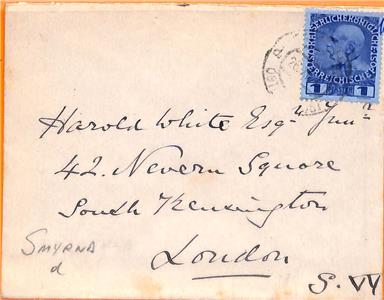 KAISERLICHEKÖNIGLICHE
ÖSTERREICHISCHE POST
1 PIASTER 1
Harold White Esqre Junr
42. Nevern Square
South Kensington
London
S. W
SMYRNA
d